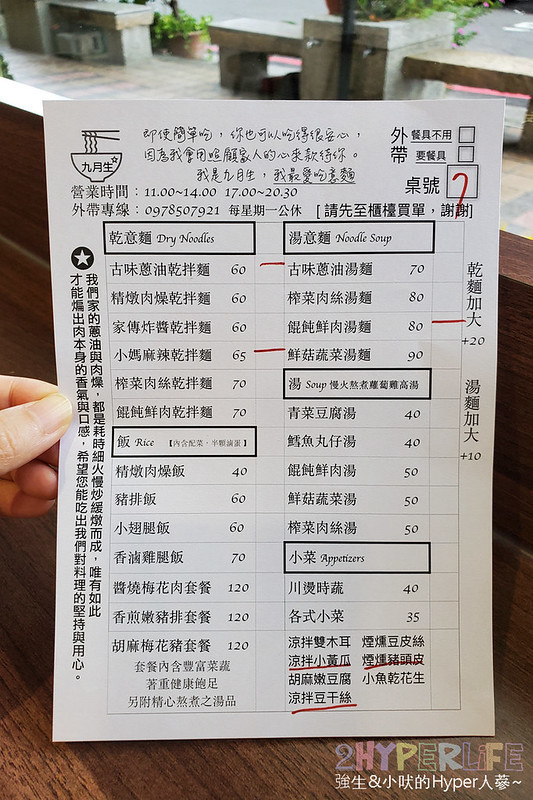 九月生
即使簡單吃，你也可以吃得很安心，
因為我會用照顧家人的心來款待你。
我是九月生，我最愛吃意麵
外帶 餐具不用
要餐具
桌號 7
營業時間：11.00~14.00 17.00~20.30
外帶專線：0978507921 每星期一公休 [ 請先至櫃檯買單，謝謝]
乾意麵 Dry Noodles
古味蔥油乾拌麵 60
精燉肉燥乾拌麵 60
家傳炸醬乾拌麵 60
小媽麻辣乾拌麵 65
榨菜肉絲乾拌麵 70
餛飩鮮肉乾拌麵 70
飯 Rice 【內含配菜，半顆滷蛋】
精燉肉燥飯 40
豬排飯 60
小翅腿飯 60
香滷雞腿飯 70
醬燒梅花肉套餐 120
香煎嫩豬排套餐 120
胡麻梅花豬套餐 120
套餐內含豐富菜蔬
著重健康飽足
另附精心熬煮之湯品
湯意麵 Noodle Soup
古味蔥油湯麵 70
榨菜肉絲湯麵 80
餛飩鮮肉湯麵 80
鮮菇蔬菜湯麵 90
湯 Soup 慢火熬煮蘿蔔雞高湯
青菜豆腐湯 40
鱈魚丸仔湯 40
餛飩鮮肉湯 50
鮮菇蔬菜湯 50
榨菜肉絲湯 50
小菜 Appetizers
川燙時蔬 40
各式小菜 35
涼拌雙木耳 煙燻豆皮絲
涼拌小黃瓜 煙燻豬頭皮
胡麻嫩豆腐 小魚乾花生
涼拌豆干絲
乾麵加大
+20
湯麵加大
+10
我們家的蔥油與肉燥，都是耗時細火慢炒緩燉而成，唯有如此
才能煸出肉本身的香氣與口感，希望您能吃出我們對料理的堅持與用心。
2HYPERLiFE
強生&小吠的Hyper人蔘~